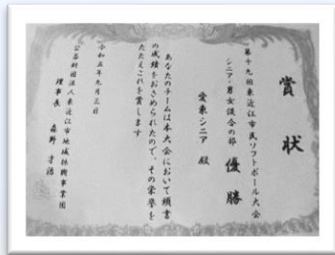 賞状
第十九回東近江市民ソフトボール大会
シニア・男女混合の部 優勝
愛東シニア 殿
あなたのチームは本大会において頭書
の成績をおさめられたので、その栄誉を
たたえこれを賞します
令和五年九月三日
公益財団法人東近江市地域振興事業団
理事長